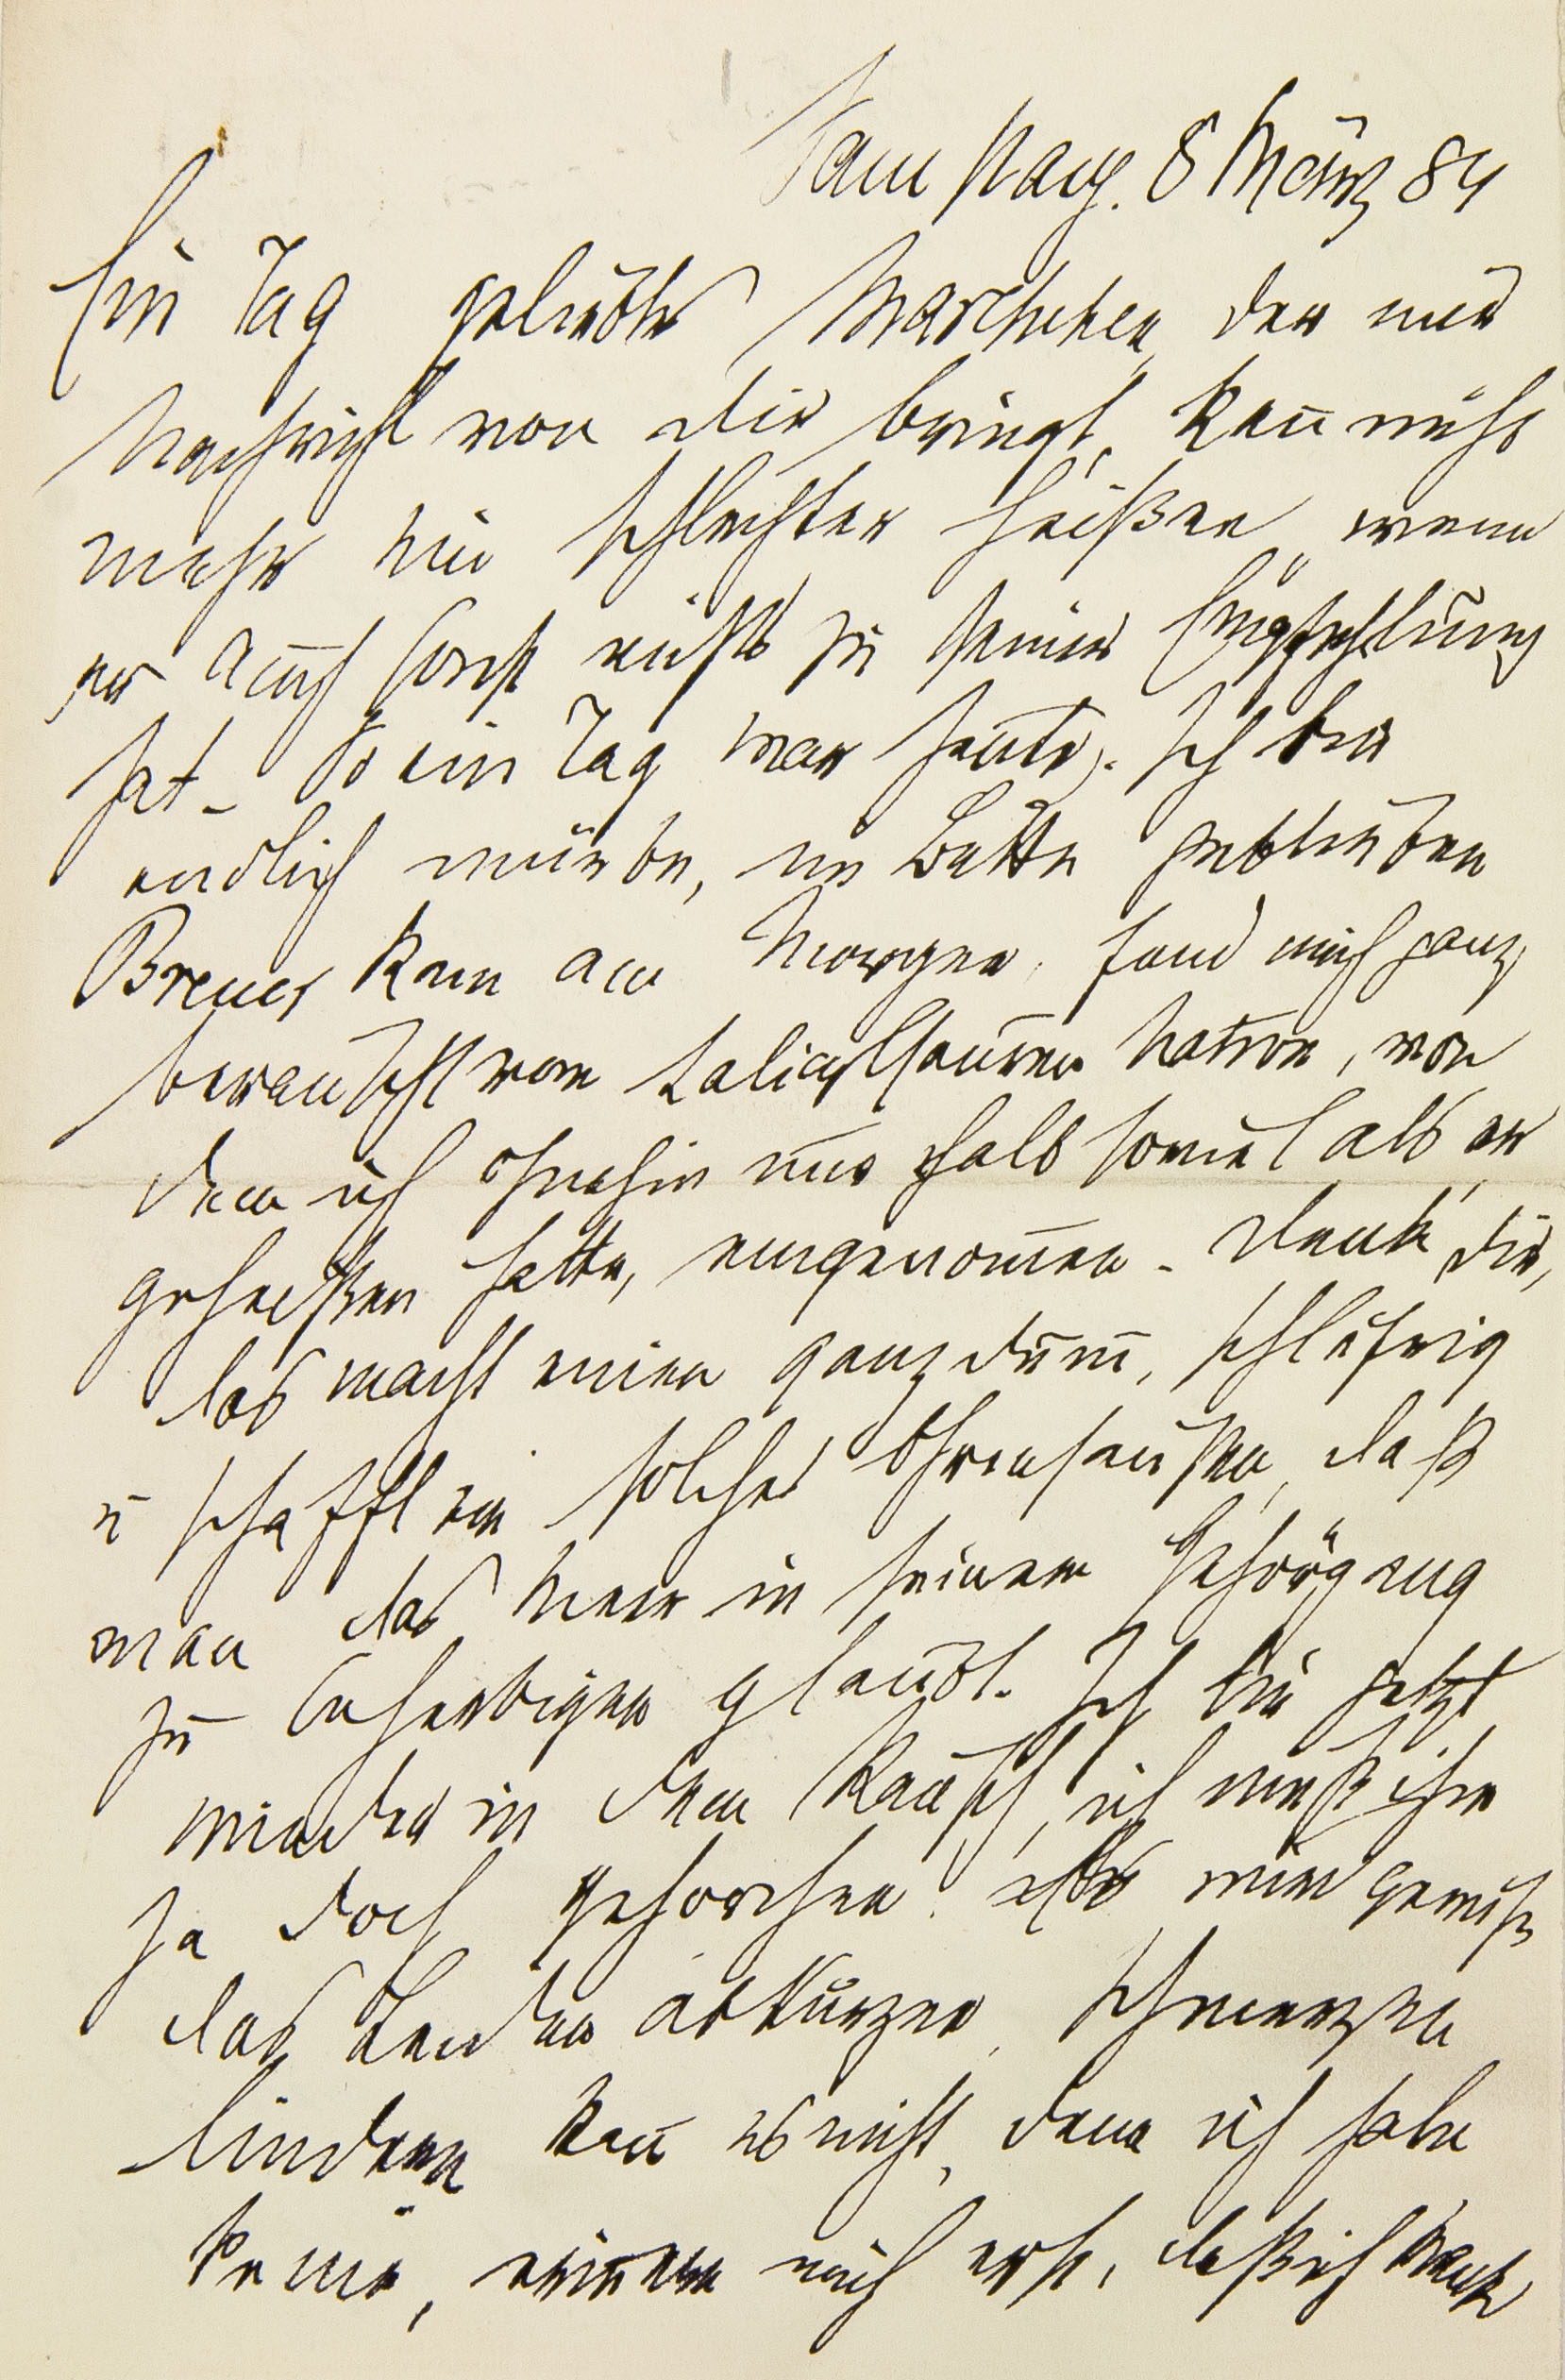 Samstag. 8 März 84
Ein Tag geliebtes Marthchen, der mir
Nachricht von dir bringt, kann nicht
mehr ein schlechter heißen, wenn
er auch sonst nichts zu seiner Empfehlung
hat. So ein Tag war heute. Ich bin
endlich mürbe, im Bette geblieben
Breuer kam am Morgen, fand mich ganz
berauscht vom Salicylsauren Natron, von
dem ich ohnehin nur halb soviel als er
geheißen hatte, eingenommen. Denk' dir,
das macht einen ganz dumm, schläfrig
u schafft ein solches Ohrensausen, daß
man das Meer in seinem Gehörgang
zu beherbigen glaubt. Ich bin jetzt
wieder in dem Rausch, ich muß ihm
ja doch gehorchen. Es wird gewiß
das Leiden abkürzen, Schmerzen
lindern kann es nicht, denn ich habe
keine, erinnere mich erst, daß ich krank